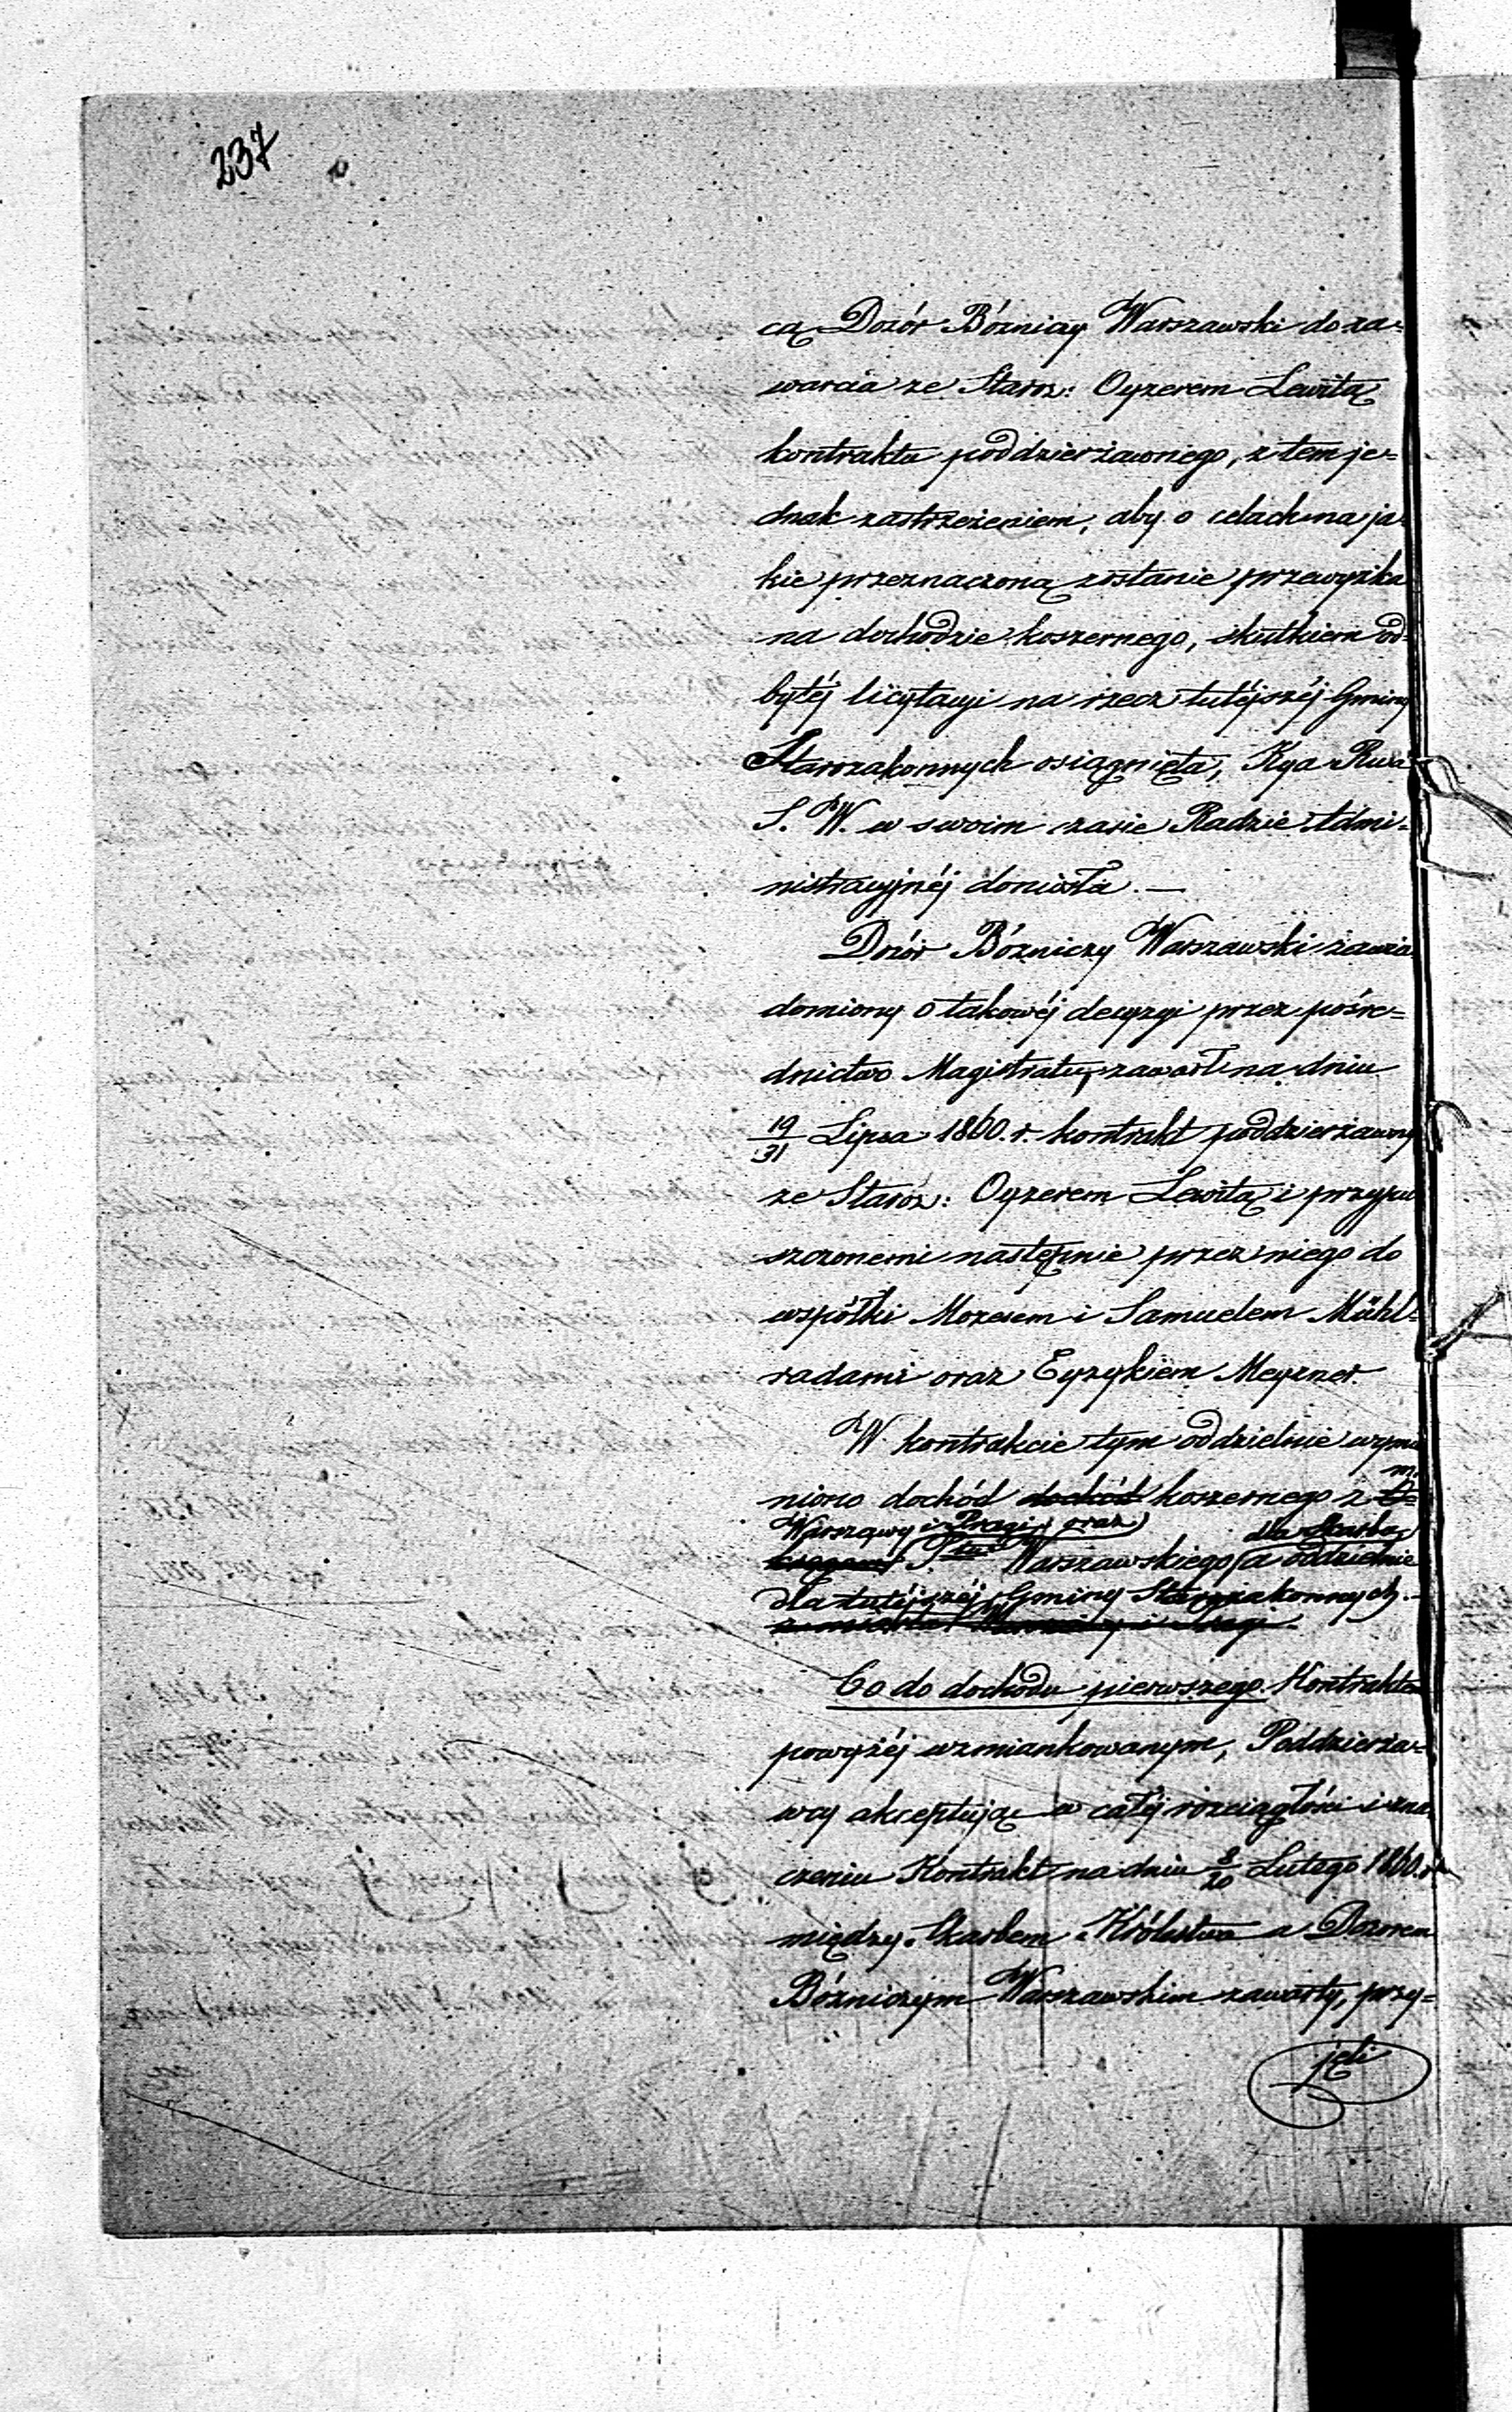 237
cą Dozór Bózniczy Warszawski do za=
warcia ze Staroz: Oyzerem Lewitą
kontraktu poddzierżawnego, z tem je=
dnak zastrzeżeniem, aby o celach na ja=
kie przeznaczoną zostanie przewyżka
na dochodzie koszernego, skutkiem od=
bytéj licytacyi na rzecz tutéjszéj Gminy
Starozakonnych osiągnięta, Kya Rwa
S. W. w swoim czasie Radzie Admi=
nistracyjnéj doniosła. —
Dozór Bózniczy Warszawski zawia
domiony o takowéj decyzyi przez pośre=
dnictwo Magistratu, zawarł na dniu
19/31 Lipca 1860. r. kontrakt poddzierżawny
ze Staroz: Oyzerem Lewitą i przypu
szczonemi następnie przez niego do
wspólki Mozesem i Samuelem Mühl=
radami oraz Eyzykiem Meyzner.
W kontrakcie tym oddzielnie wymie
niono dochód dochód koszernego z m.
Warszawy i Pragi, oraz dla Skarbu
Warszawskiego, a oddzielnie
dla tutéjszéj Gminy Starozakonnych. —
z miasta Warszawy i Pragi.
Co do dochodu pierwszego. Kontraktem
powyżéj wzmiankowanym, Poddzierża=
wcy akceptując w całéj rozciągłości i zna
czeniu Kontrakt na dniu 8/20 Lutego 1860. r.
między Skarbem Królestwa a Dozorem
Bózniczym Warszawskim zawarty, przy=
jęli